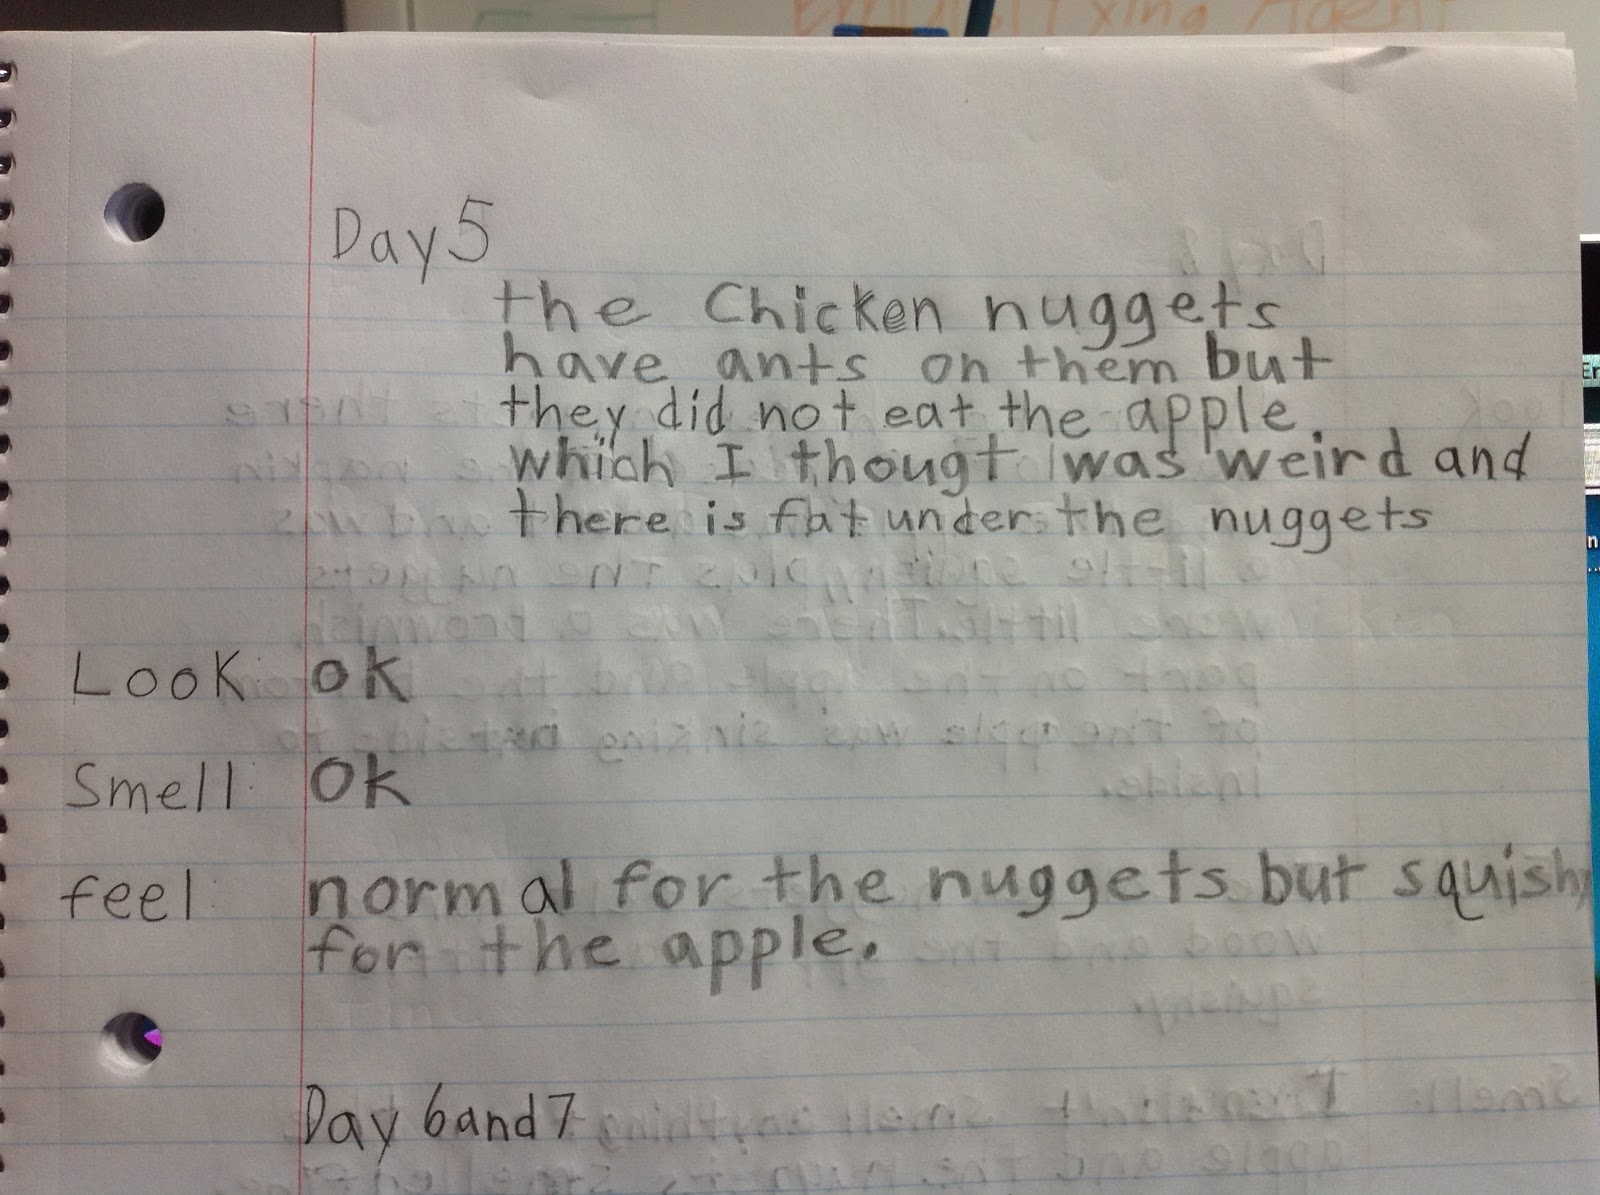 Day 5
the Chicken nuggets
have ants on them but
they did not eat the apple
which I thougt was weird and
there is fat under the nuggets
Look: ok
Smell: Ok
feel: normal for the nuggets but squishy
for the apple.
Day 6 and 7